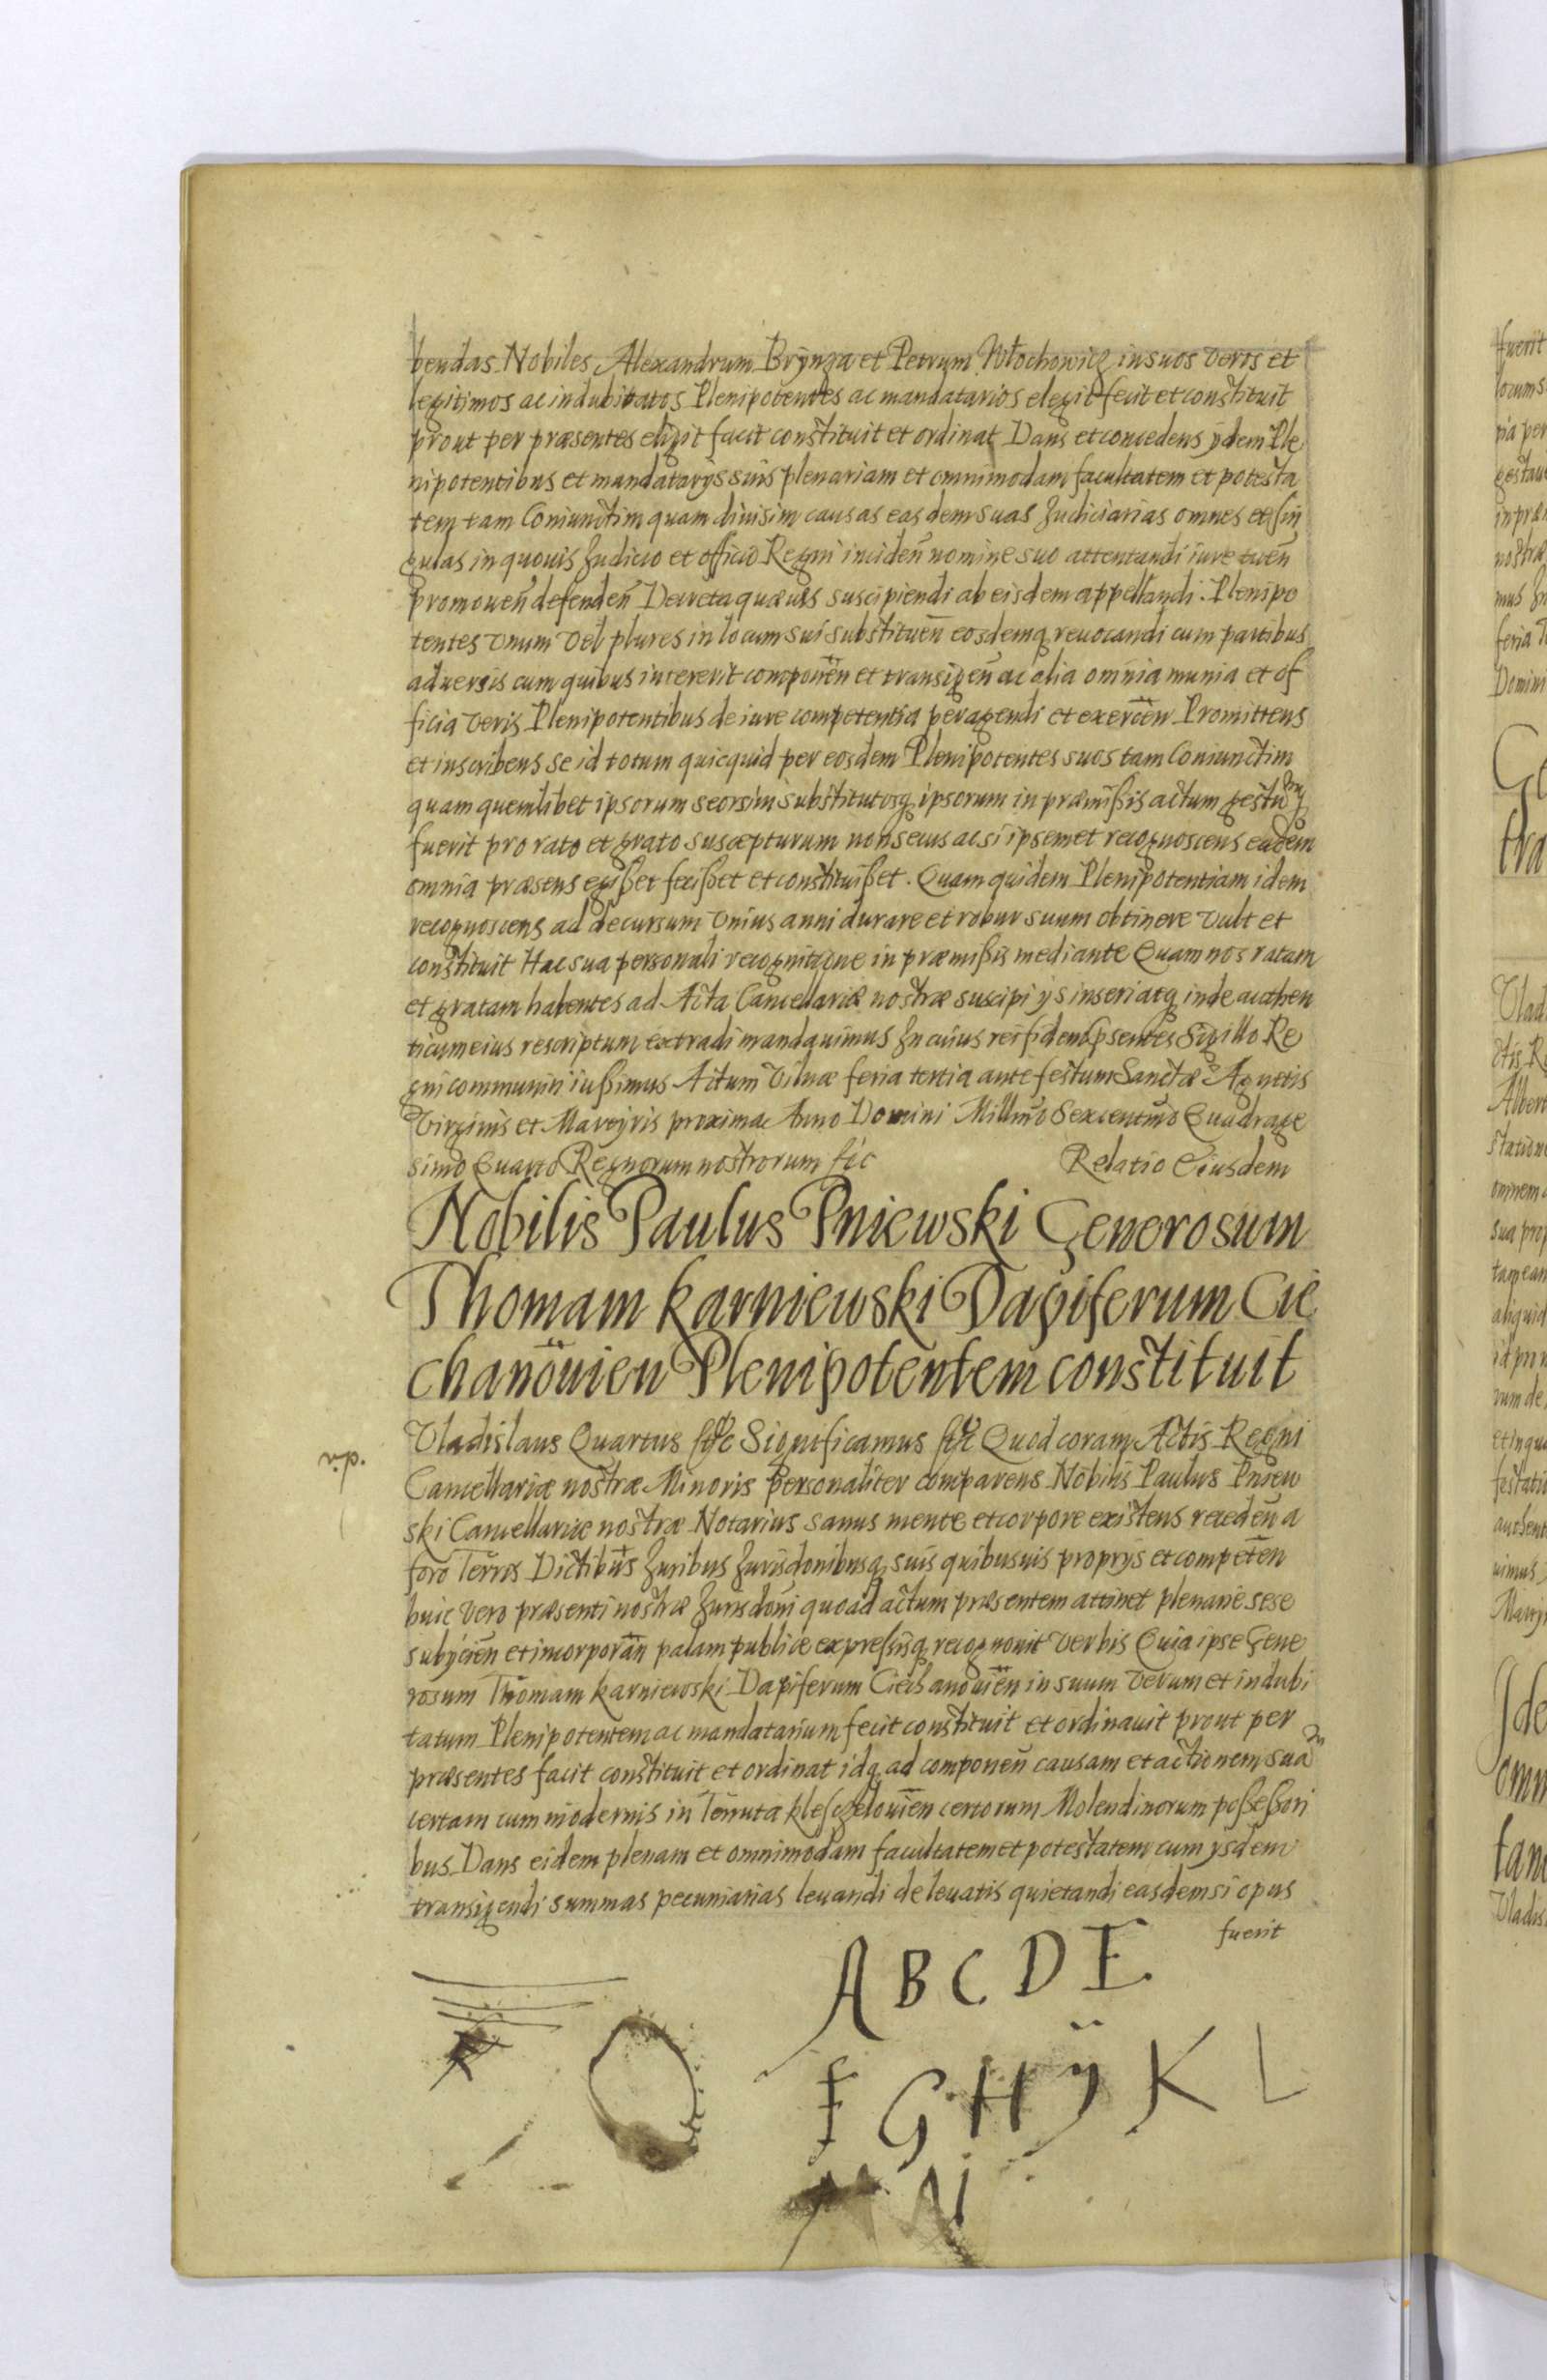 bendas Nobiles Alexandrum Brynza et Petrum Włochowicz in suos veros et
legitimos ac indubitatos Plenipotentes ac mandatarios elegit fecit et constituit
prout per præsentes eligit facit constituit et ordinat Dans et concedens ijdem Ple
nipotentibus et mandatarijs suis plenariam et omnimodam facultatem et potesta
tem tam Coniunctim quam diuisim causas easdem suas Judiciarias omnes et sin
gulas in quouis Judicio et officio Regni inciden nomine suo attentandi iure tuen
promouen defenden Decreta quæuis suscipiendi ab eisdem appellandi. Plenipo
tentes vnum vel plures in locum sui substituen eosdemq reuocandi cum partibus
aduersis cum quibus intererit componen et transigen ac alia omnia munia et of
ficia veris Plenipotentibus de iure competentia peragendi et exercen Promittens
et inscribens se id totum quicquid per eosdem Plenipotentes suos tam Coniunctim
quam quemlibet ipsorum seorsim substitutosq ipsorum in præmißis actum gestuq
fuerit pro rato et grato suscepturum non secus ac si ipsemet recognoscens eadem
omnia præsens egißet fecißet et constituißet. Quam quidem Plenipotentiam idem
recognoscens ad decursum vnius anni durare et robur suum obtinere vult et
constituit Hac sua personali recognitione in præmißis mediante Quam nos ratam
et gratam habentes ad Acta Cancellariæ nostræ suscipi ijs inseri atq inde authen
ticum eius rescriptum extradi mandauimus Jn cuius rei fidem psentes Sigillo Re
gni communiri iußimus Actum Vilnæ feria tertia ante festum Sanctæ Agnetis
Virginis et Martyris proxima Anno Domini Millmo Sexcentmo Quadrage
simo Quarto Regnorum nostrorum etc Relatio Eiusdem
Nobilis Paulus Pniewski Generosum
Thomam Karniewski Dapiferum Cie
chanouien Plenipotentem constituit
Vladislaus Quartus etc Significamus etc Quod coram Actis Regni
Cancellariæ nostræ Minoris personaliter comparens Nobilis Paulus Pniew
ski Cancellariæ nostræ Notarius sanus mente et corpore existens receden a
foro Terris Dictibus Juribus Jurisdonibusq suis quibusuis proprijs et competen
huic vero præsenti nostræ Jurisdoni quoad actum præsentem attinet plenarie sese
subijcien et incorporan palam publice expressisq recognouit verbis Quia ipse Gene
rosum Thomam Karniewski Dapiferum Ciechanouien in suum verum et indubi
tatum Plenipotentem ac mandatarium fecit constituit et ordinauit prout per
præsentes facit constituit et ordinat idq ad componen causam et actionem sua
certam cum modernis in Tenuta Kleszczelouien certorum Molendinorum poßeßori
bus Dans eidem plenam et omnimodam facultatem et potestatem cum ijsdem
transigendi summas pecuniarias leuandi de leuatis quietandi easdem si opus
fuerit
A B C D E
F G H ÿ K L
M N